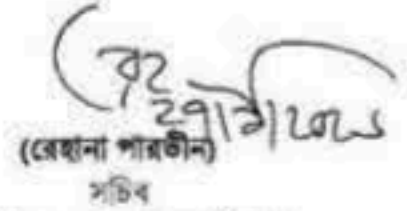 (রেহানা পারভীন)
সচিব